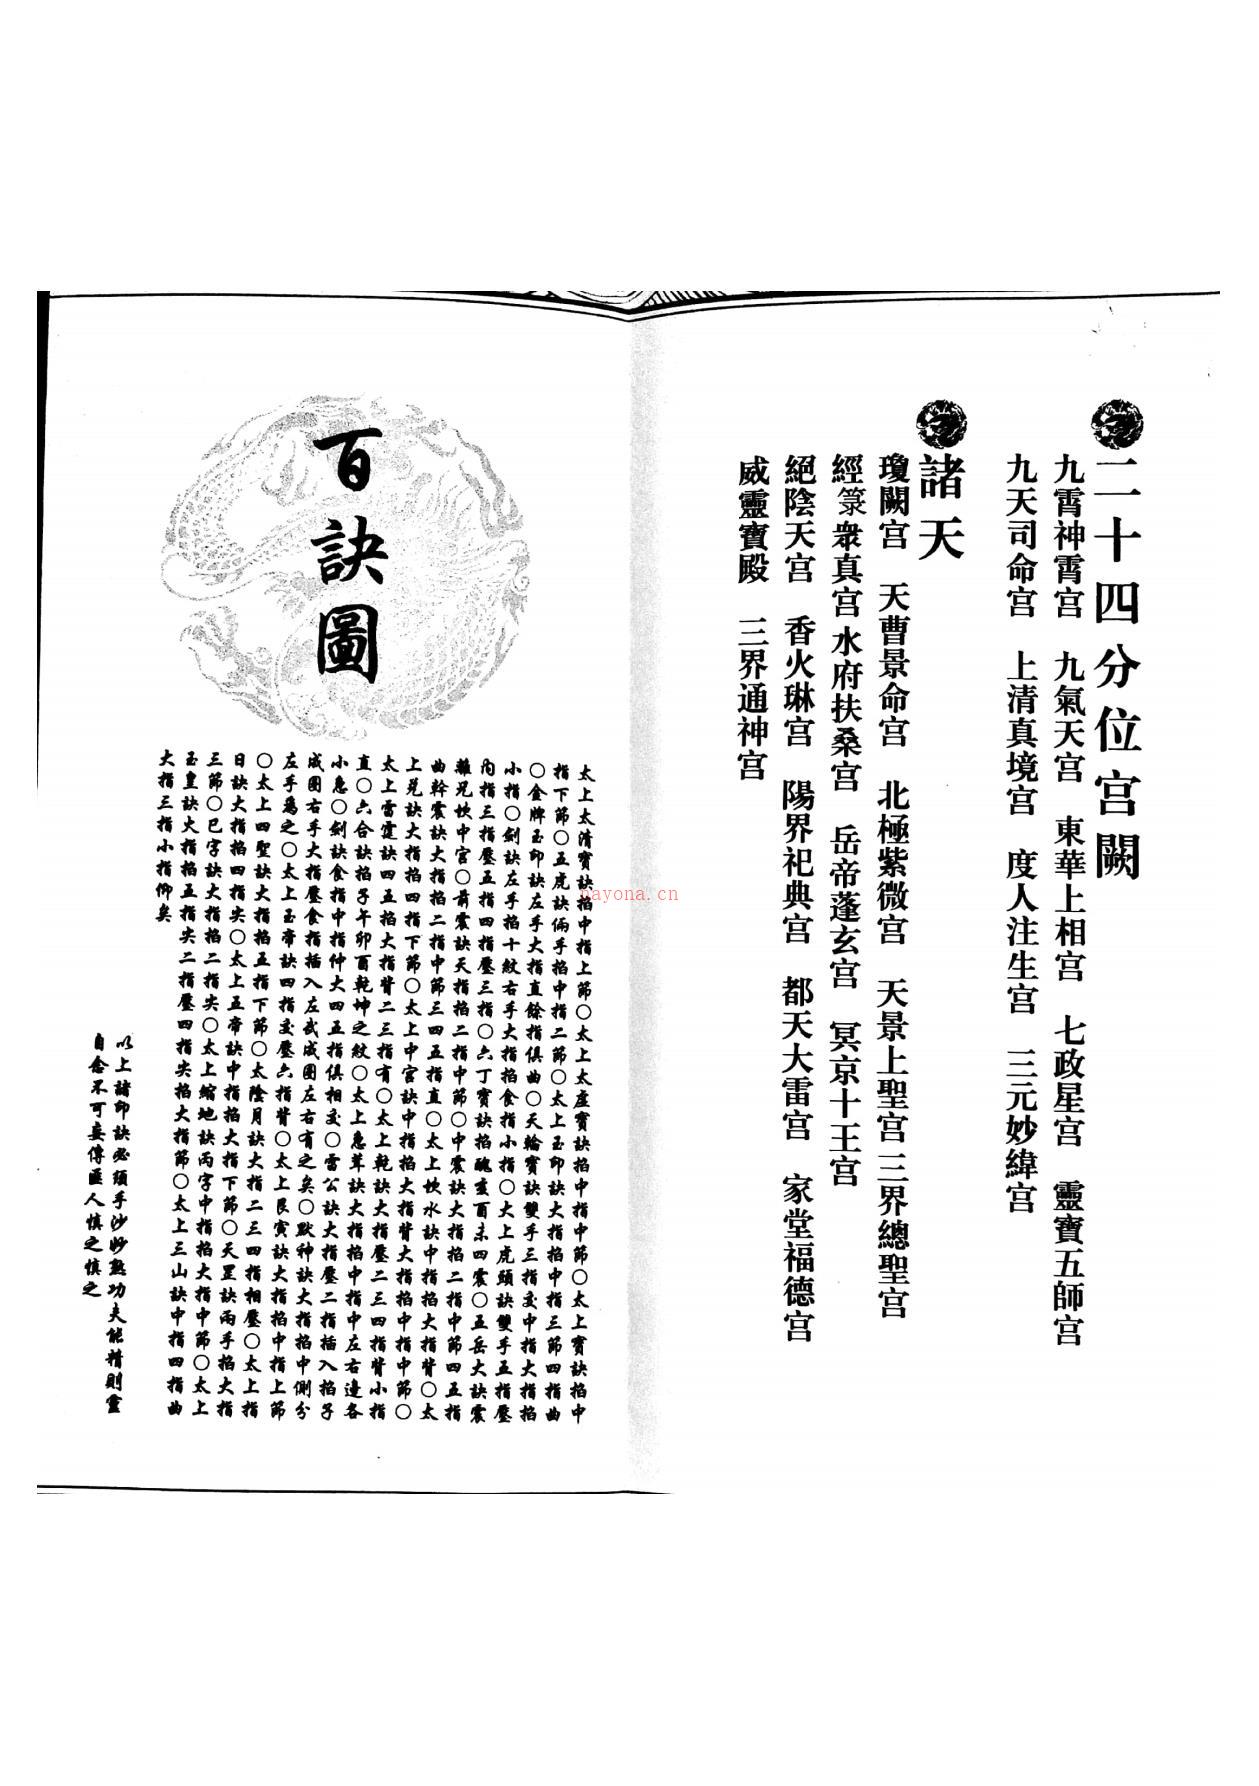 二十四分位宫闕
九霄神霄宫　九氣天宫　東華上相宫　七政星宫　靈寶五師宫
九天司命宫　上清真境宫　度人注生宫　三元妙緯宫
諸天
瓊闕宫　天曹景命宫　北極紫微宫　天景上聖宫三界總聖宫
經箓衆真宫水府扶桑宫　岳帝蓬玄宫　冥京十王宫
絕陰天宫　香火琳宫　陽界祀典宫　都天大雷宫　家堂福德宫
威靈寶殿　三界通神宫
百訣圖
太上太清寶訣掐中指上節○太上太虛寶訣掐中指中節○太上寶訣掐中
指下節○五虎訣倆手掐中指二節○太上玉印訣大指掐中指三節四指曲
○金牌玉印訣左手大指直餘指俱曲○天輪寶訣雙手三指交中指大指掐
小指○劍訣左手掐十紋右手大指掐食指小指○太上虎頭訣雙手五指壓
內指三指壓五指四指壓三指○六丁寶訣掐醜亥酉未四震○五岳大訣震
離兑坎中宫○前震訣天指掐二指中節○中震訣大指掐二指中節四五指
曲幹震訣大指掐二指中節三四五指直○太上坎水訣中指掐大指背○太
上兑訣大指掐四指下節○太上中宫訣中指掐大指背大指掐中指中節○
太上雷霆訣四五掐大指背二三指有○太上乾訣大指壓二三四指背小指
直○六合訣掐子午卯酉乾坤之紋○太上急茸訣大指掐中指中左右邊各
小急○劍訣食指中指伸大四五指俱相交○雷公訣大指壓二指插入掐子
成團右手大指壓食指插入左武成團左右有之矣○默神訣大指掐中側分
左手爲之○太上玉帝訣四指交壓六指背○太上艮寅訣大指掐中指上節
○太上四聖訣大指掐五指下節○太陰月訣大指二三四指相壓○太上指
日訣大指掐四指尖○太上五帝訣中指掐大指下節○天罡訣兩手掐大指
三節○巳字訣大指掐二指尖○太上縮地訣丙字中指掐大指中節○太上
玉皇訣火指掐五指尖二指壓四指尖掐大指節○太上三山訣中指四指曲
大指三指小指仰矣
以上諸印訣必須手沙妙熟功夫能精則靈
自念不可妄傳匪人慎之慎之
nayona.cn